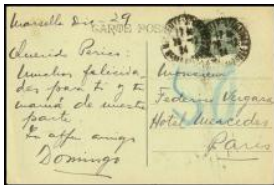 Marsella Dic. 29
CARTE POSTALE
Querido Perico:
Muchas felicida-
des para ti y tu
mamá de nuestra
parte.
Tu affmo amigo
Domingo
Monsieur
Federico Vergara
Hotel Mercedes
Paris